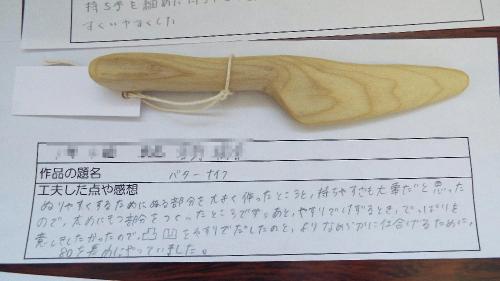 持ち手を細めに
すくいやすくした
作品の題名
バターナイフ
工夫した点や感想
ぬりやすくするためにぬる部分を大きく作ったところと、持ちやすさも大事だと思った
ので、太めにもつ部分をつくったところです。あと、やすりでけずるとき、でっぱりを
意しきしたかったので、凸凹をやすりでだしたのと、よりなめらかに仕合げるために、
80を長めにやっていました。